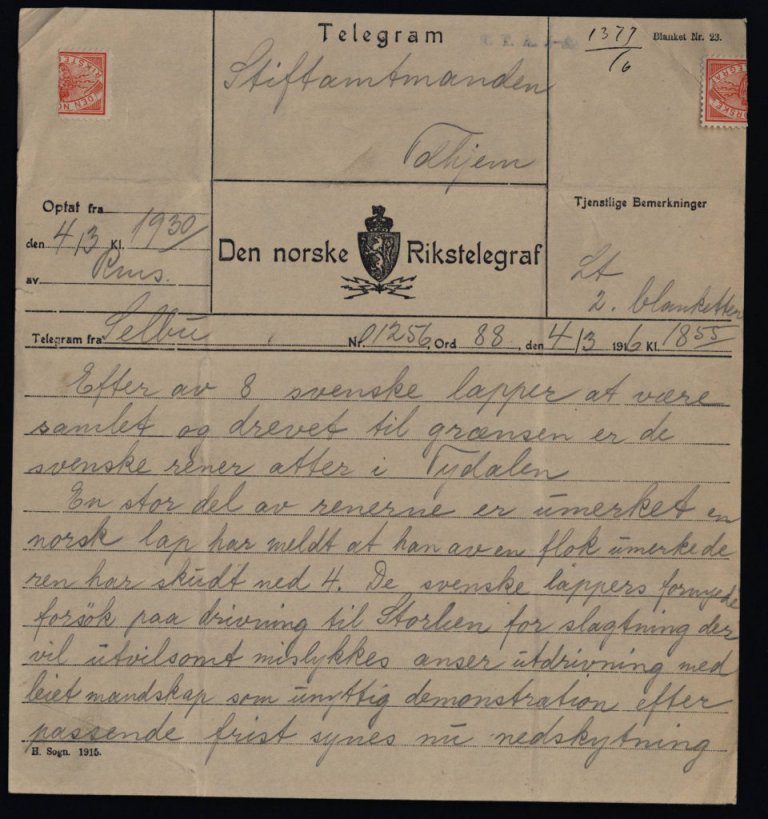 Telegram
1377/16
Blanket Nr. 23.
Stiftamtmanden
Tdhjem
Optat fra
den 4/3 Kl. 1930
av
Tjenstlige Bemerkninger
Den norske Rikstelegraf
St
2. blanketter
Telegram fra Selbu Nr. 01256, Ord 88, den 4/3 1916 Kl. 1855
Efter av 8 svenske lapper at være
samlet og drevet til grænsen er de
svenske rener atter i Tydalen
En stor del av renerne er umerket en
norsk lap har meldt at han av en flok umerkede
ren har skudt ned 4. De svenske lappers fornyede
forsök paa drivning til Storlien for slagtning der
vil utvilsomt mislykkes anser utdrivning med
leiet mandskap som unyttig demonstration efter
passende frist synes nu nedskytning
H. Sogn. 1915.